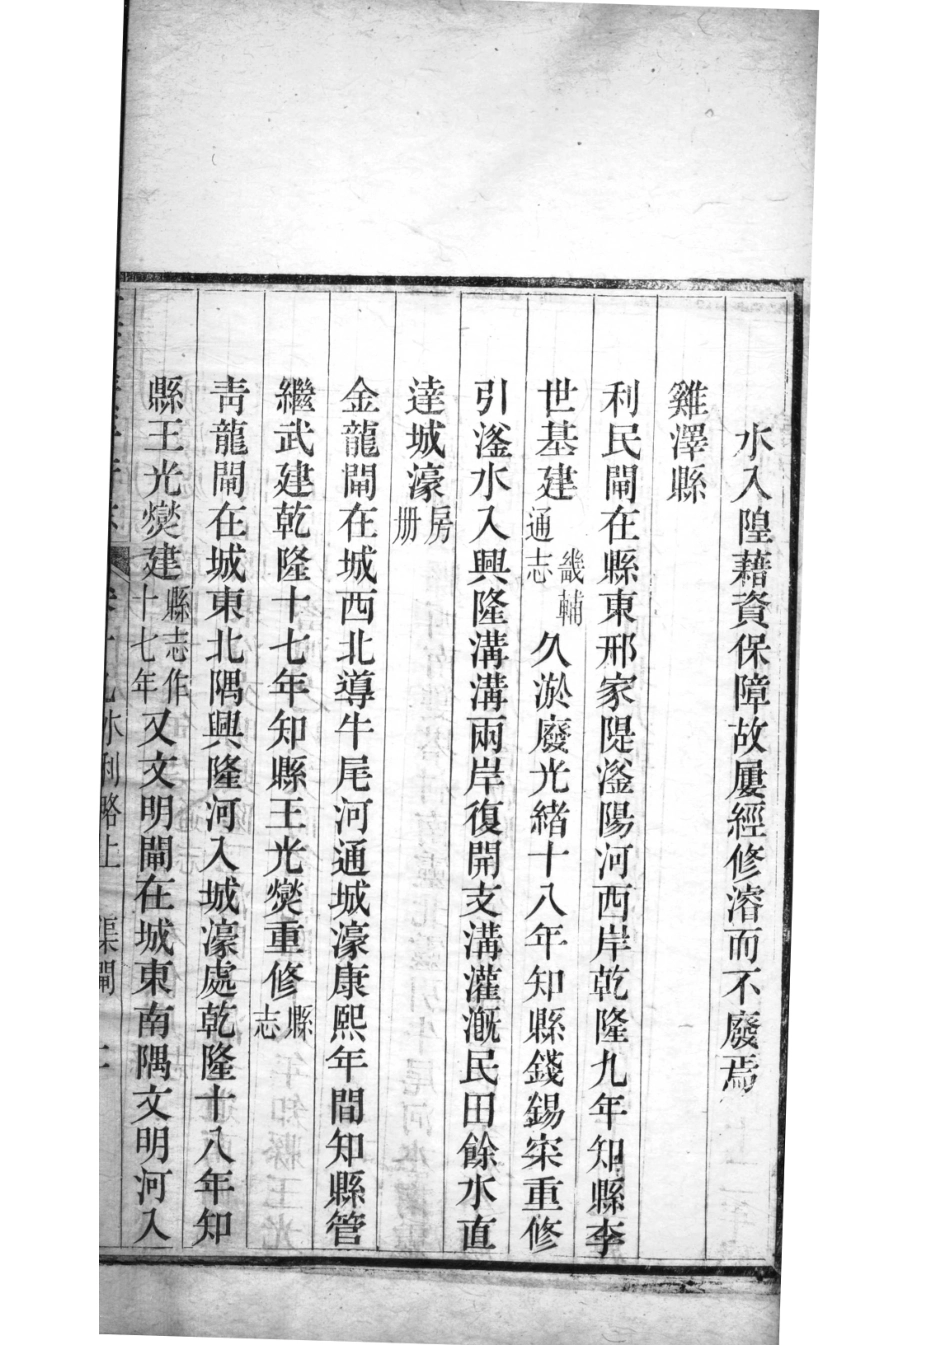 水入隍藉資保障故屢經修濬而不廢焉
雞澤縣
利民閘在縣東邢家隄滏陽河西岸乾隆九年知縣李
世基建畿輔通志久淤廢光緒十八年知縣錢錫寀重修
引滏水入興隆溝溝兩岸復開支溝灌溉民田餘水直
達城濠房册
金龍閘在城西北導牛尾河通城濠康熙年間知縣管
繼武建乾隆十七年知縣王光燮重修縣志
靑龍閘在城東北隅興隆河入城濠處乾隆十八年知
縣王光燮建縣志作十七年又文明閘在城東南隅文明河入
水利略上 渠閘